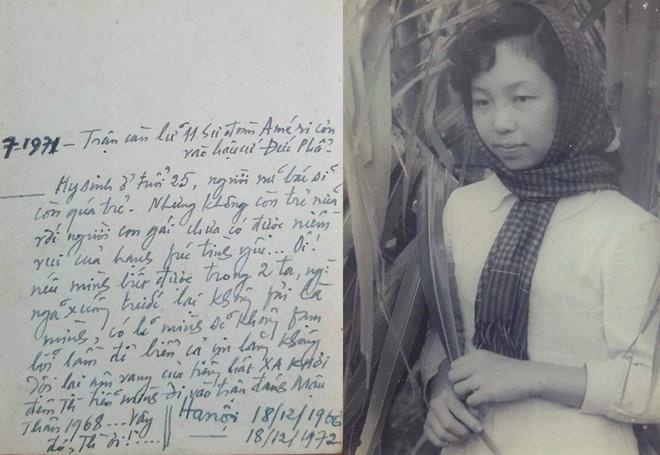 7-1971 - Trận càn lữ 11 Sư đoàn Américơn
vào hậu cứ Đức Phổ.
Hy sinh ở tuổi 25, người nữ bác sĩ
còn quá trẻ. Nhưng không còn trẻ nữa
với người con gái chưa có được niềm
vui của hạnh fúc tình yêu... Ôi!
nếu mình biết được trong 2 ta, ng
ngã xuống trước lại không fải là
mình, có lẽ mình sẽ không fạm
lỗi lầm để biển cả im lặng không
dội lại âm vang của tiếng hát XA KHƠI
đêm Th tiễn mình đi vào trận đánh Mậu
Thân 1968.... Vậy
đó, Th ơi!....
Hanội 18/12/1966
18/12/1972